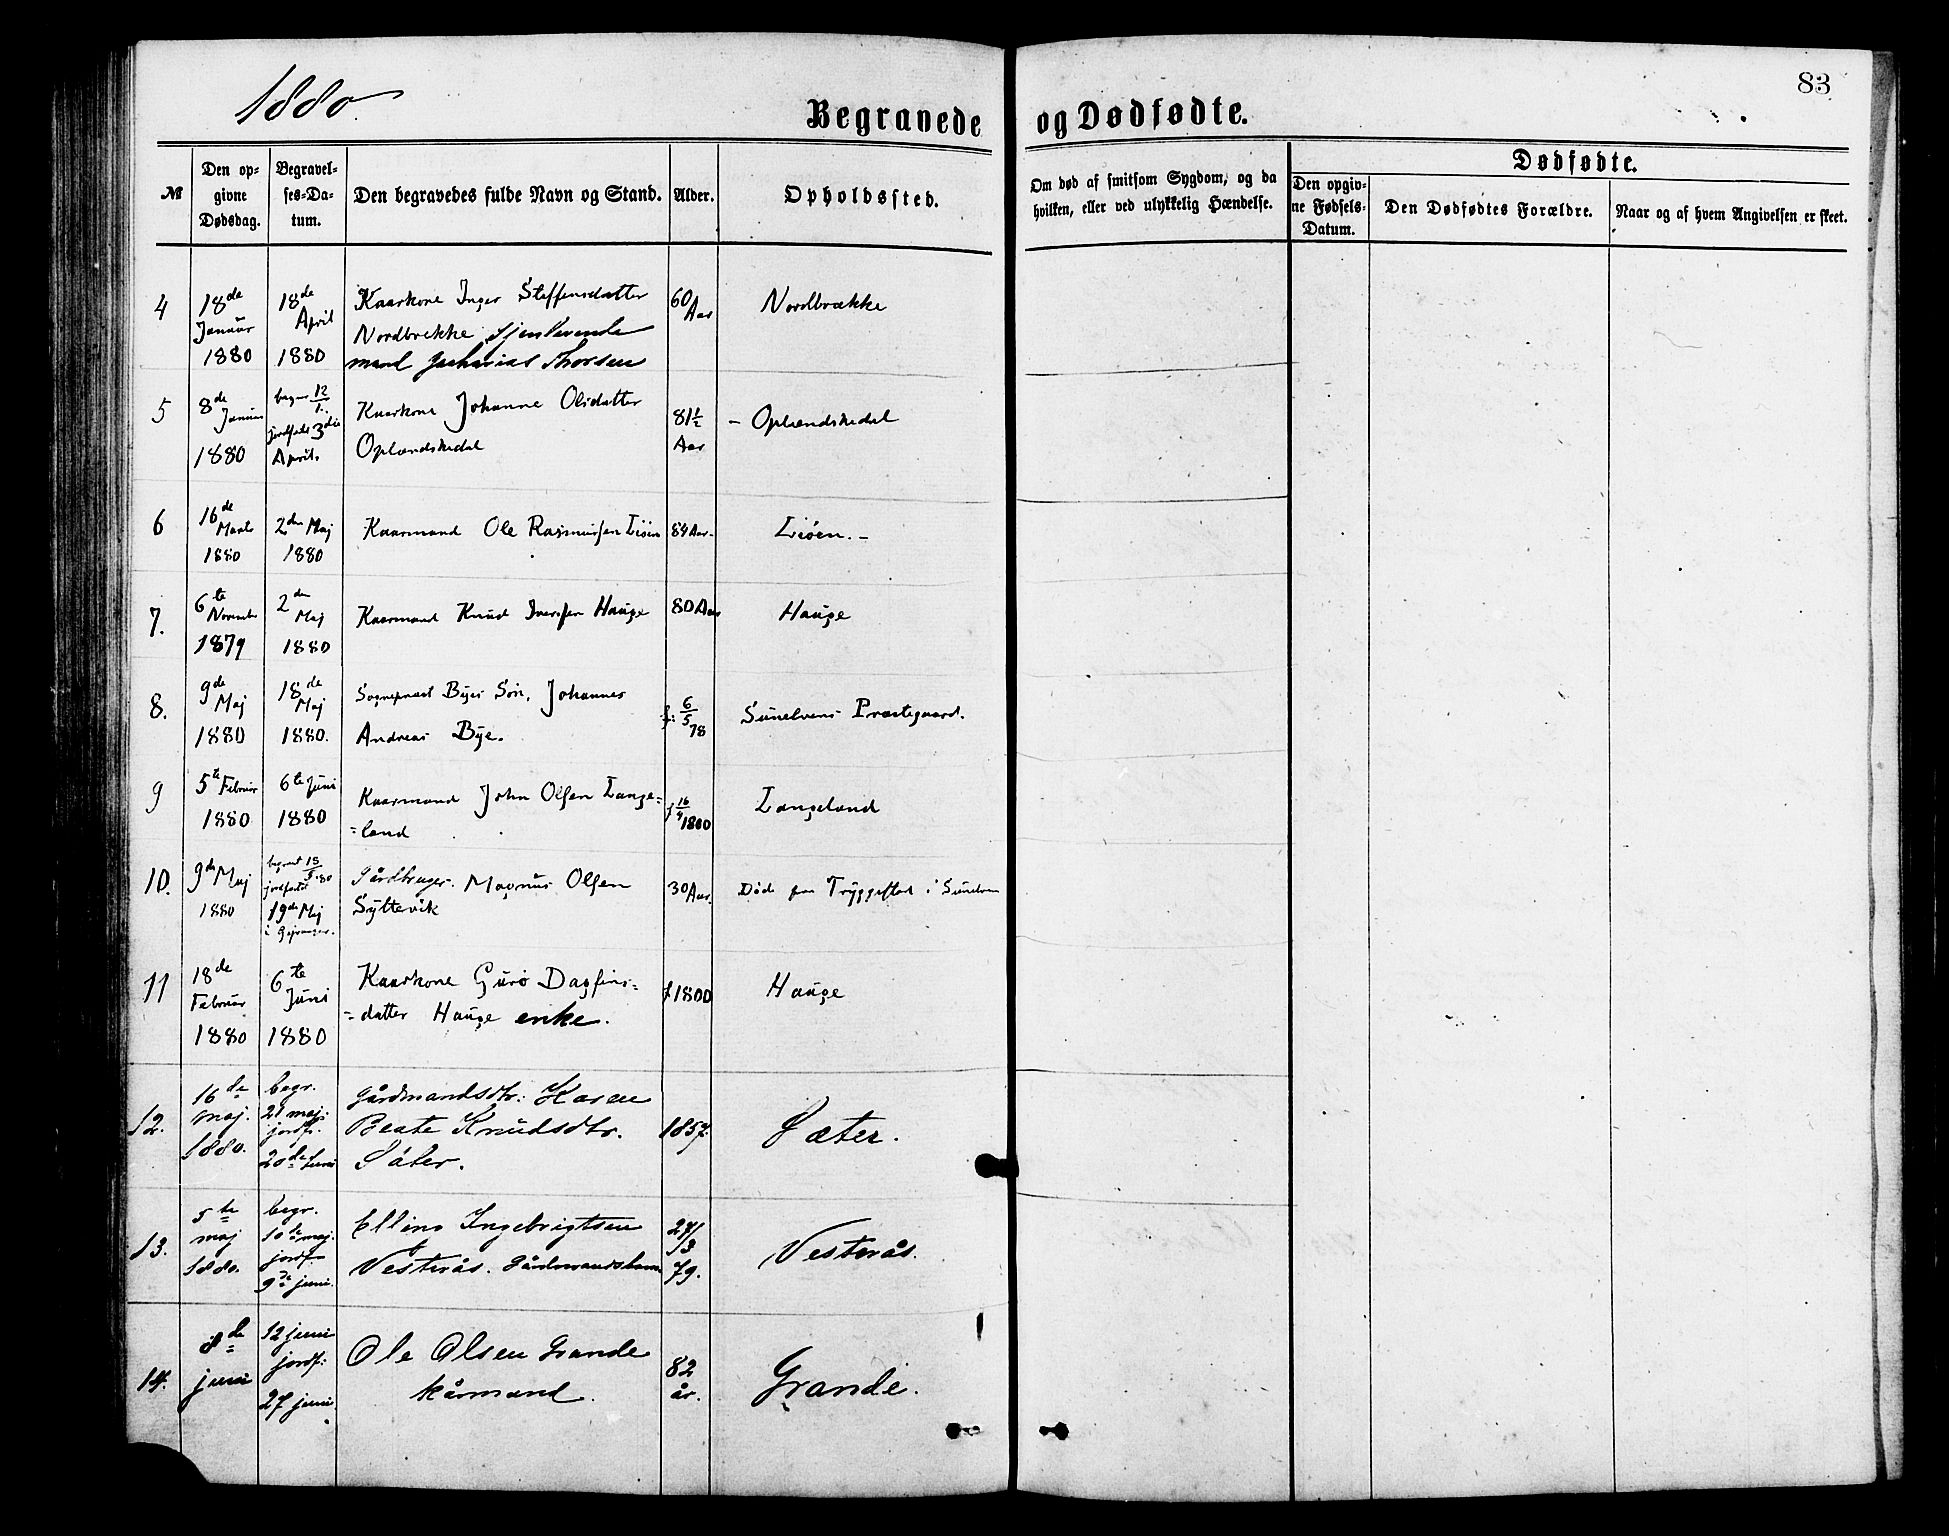 1880.
83
Begravede og Dødfødte.
№
Den op-
givne
Dødsdag.
Begravel-
ses-Da-
tum.
Den begravedes fulde Navn og Stand.
Alder.
Opholdssted.
Om død af smitsom Sygdom, og da
hvilken, eller ved ulykkelig Hændelse.
Dødfødte.
Den opgiv-
ne Fødsels-
Datum.
Den Dødfødtes Forældre.
Naar og af hvem Angivelsen er skeet.
4
18de
Januar
1880
18de
April
1880
Kaarkone Inger Steffensdatter
Nordbrekke, Gjenlevende
mand Zacharias Thorsen
60
Aar
Nordbrække
5
8de
Januar
1880
begr. 12/1.
jordfæs 3die
April.
Kaarkone Johanne Olsdatter
Oplændskedal
81½
Aar
– Oplændskedal
6
16de
Marts
1880
2den Maj
1880
Kaarmand Ole Rasmussen Liøen
84 Aar.
Liøen. –
7.
6te
November
1879
2den
Maj
1880
Kaarmand Knud Iversen Hauge
80 Aar
Hauge
8.
9de
Maj
1880
18de
Maj
1880.
Sognepræst Byes Søn, Johannes
Andreas Bye.
f: 6/5 78
Sunelvens Præstegaard.
9
5te Februar
1880
6te Juni
1880
Kaarmand John Olsen Lange=
=land
f 16/4 1800
Langeland
10.
9de Maj
1880
begravet 15/5 80
jordfæstet
19de Maj
i Gejranger.
Gårdbruger. Magnus Olsen
Syltevik
30 Aar.
Død paa Tryggestad i Sunelven
11
18de
Februar
1880
6te
Juni
1880
Kaarkone Guro Dagfins=
=datter Hauge enke.
f 1800
Hauge
12.
16de
maj.
1880.
begr.
21 maj.
jordf.
20de juni
gårdmandsdtr. Karen
Beate Knudsdtr.
Säter.
1857.
Sæter.
13.
5te
maj
1880.
begr.
10de maj.
jordf.
9de juni.
Elling Ingebrigtsen
Vesterås. Gårdmandsbarn
27/3
79.
Vesterås.
14.
8de
juni
12 juni
jordf:
27 juni
Ole Olsen Grande
kårmand.
82
år.
Grande.